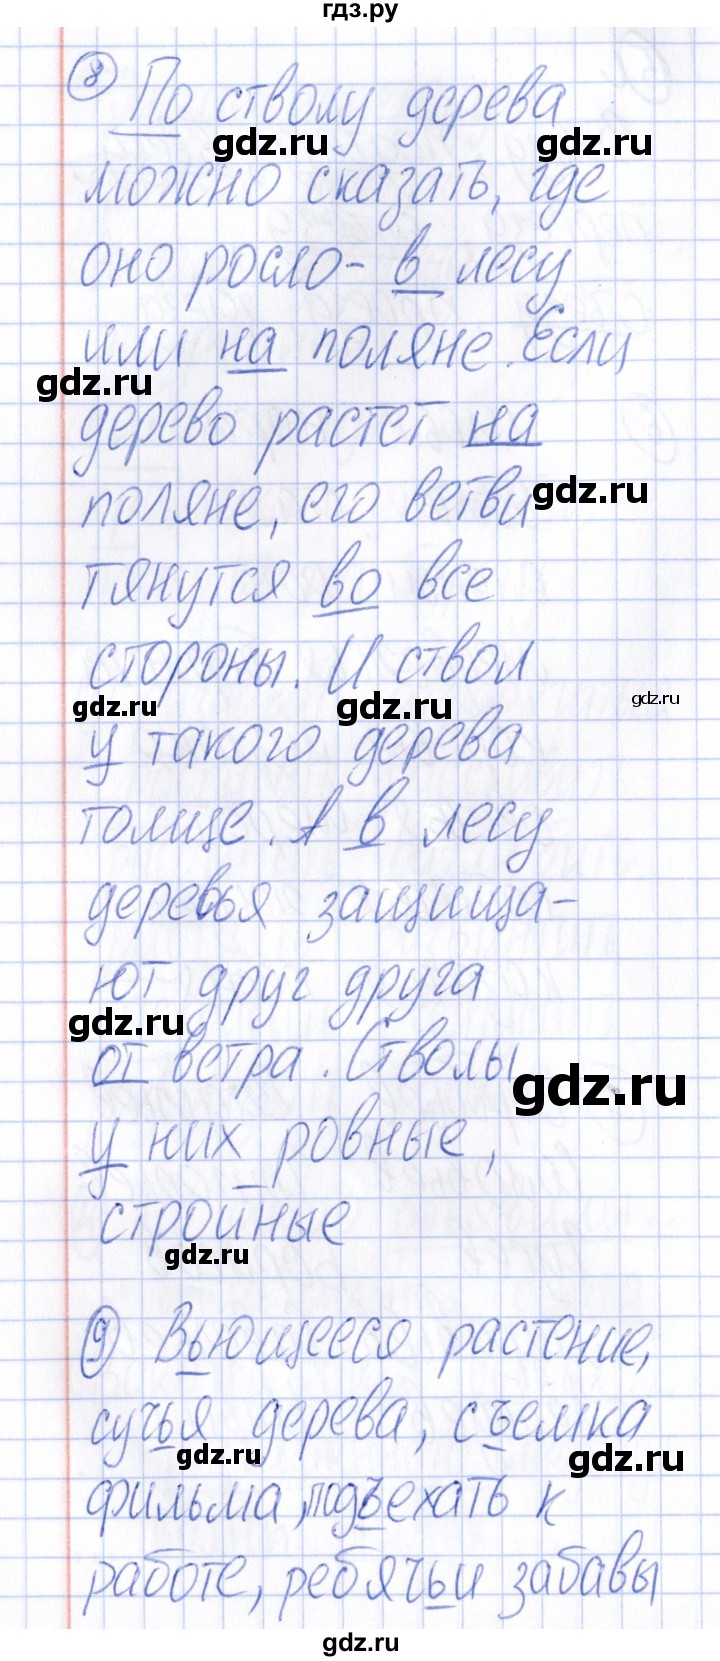 гдз.ру
8 По стволу дерева
gdz.ru gdz.ru
можно сказать, где
оно росло - в лесу
или на поляне. Если
gdz.ru
дерево растет на
gdz.ru
поляне, его ветви
тянутся во все
стороны. И ствол
gdz.ru gdz.ru gdz.ru
у такого дерева
толще. А в лесу
деревья защища-
ют друг друга
gdz.ru
от ветра. Стволы
gdz.ru
у них ровные,
стройные
gdz.ru
9 Вьющееся растение,
сучья дерева, съемка
gdz.ru gdz.ru
фильма, подъехать к
работе, ребячьи забавы
gdz.ru